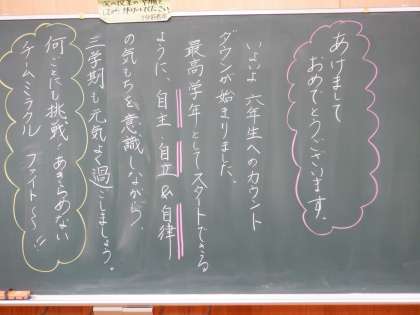 あけまして
おめでとうございます。
いよいよ 六年生へのカウント
ダウンが始まりました。
最高学年としてスタートできる
ように、自主 自立 & 自律
の気もちを意識しながら、
三学期も元気よく過ごしましょう。
何ごとにも挑戦！あきらめない
チームミラクル ファイト〜〜!!